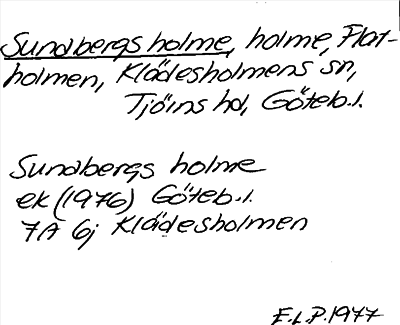 Sundbergs holme, holme, Flat-
holmen, Klädesholmens sn,
Tjörns hd, Göteb.l.
Sundbergs holme
ek (1976) Göteb.l.
7A 6j Klädesholmen
E.L.P. 1977